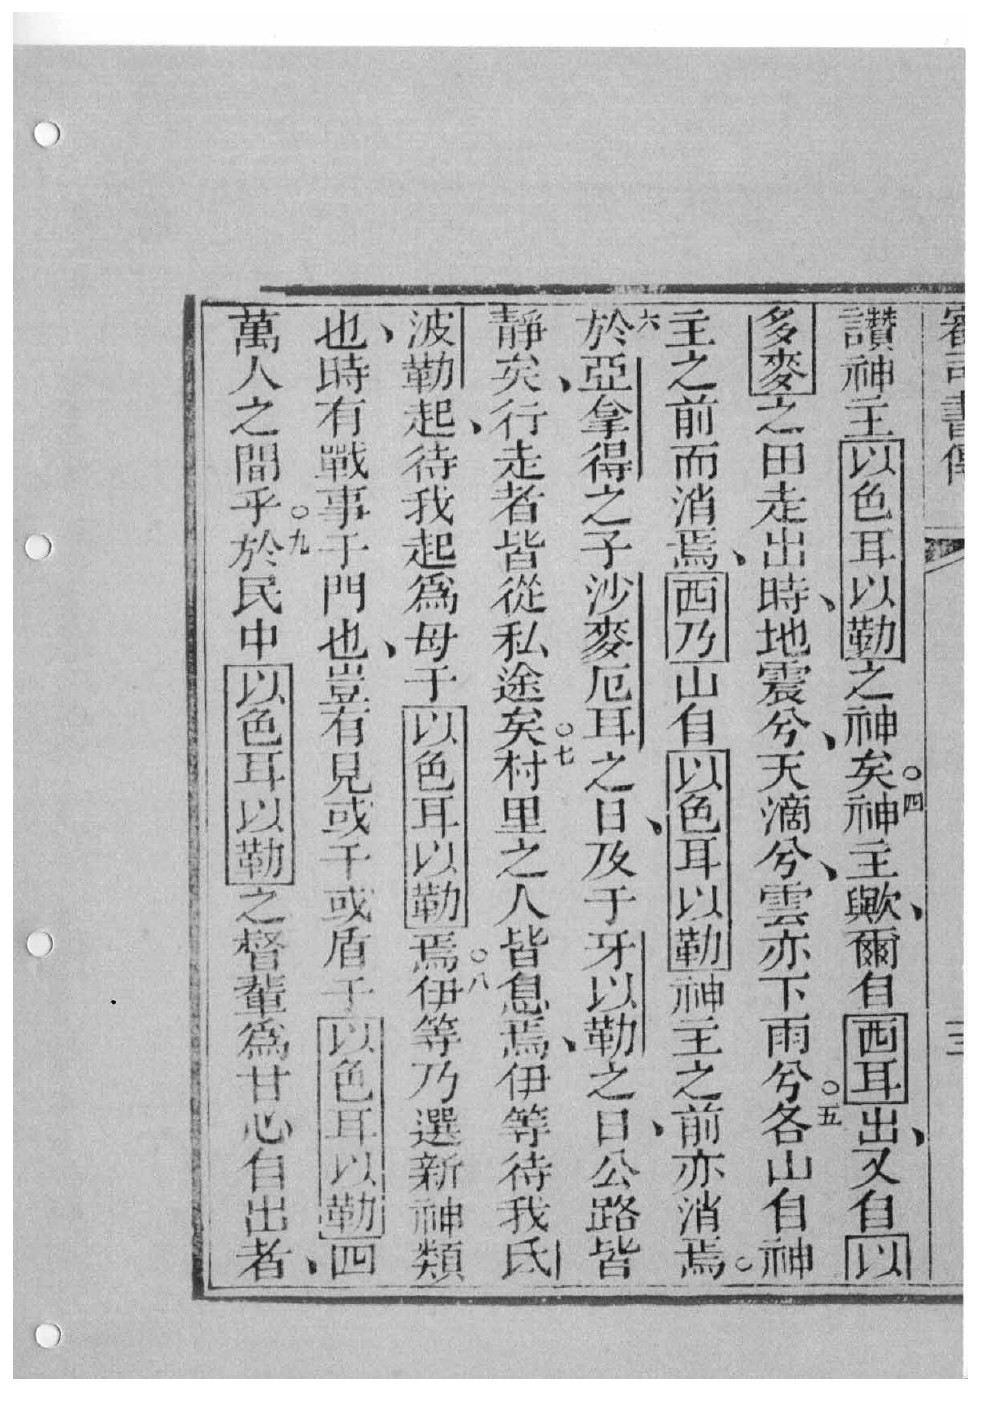 審司書傳 三
讚神主以色耳以勒之神矣○四神主歟、爾自西耳出、又自以
多麥之田走出時、地震兮、天滴兮、雲亦下雨兮○五各山自神
主之前而消焉、西乃山自以色耳以勒神主之前亦消焉○
六於亞拿得之子沙麥厄耳之日、及于牙以勒之日、公路皆
靜矣、行走者皆從私途矣○七村里之人皆息焉、伊等待我氐
波勒起、待我起爲母于以色耳以勒焉○八伊等乃選新神類
也、時有戰事于門也、豈有見或干或盾于以色耳以勒四
萬人之間乎○九於民中以色耳以勒之督輩爲甘心自出者、